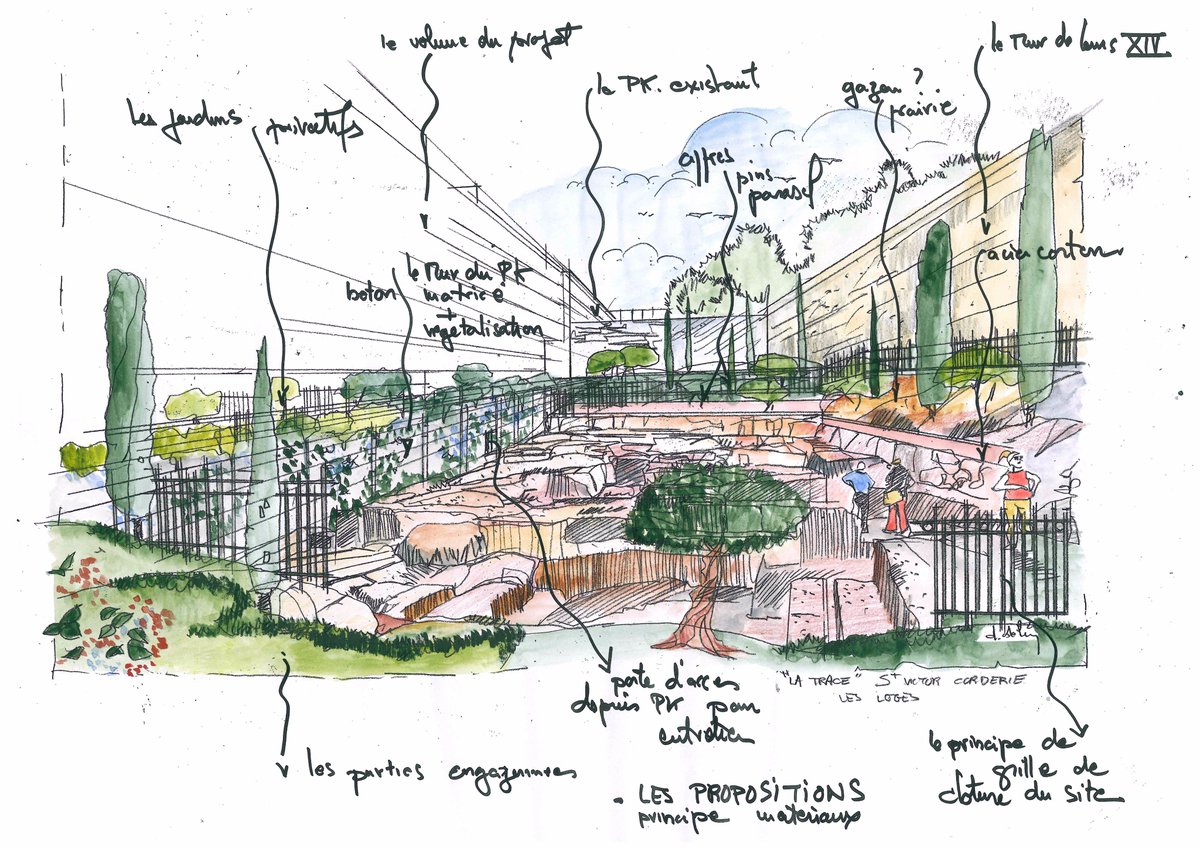 le volume du projet
le mur de Louis XIV.
le PK. existant
gazon ?
prairie
Les jardins privatifs
cyprès
pins
parasol
acier corten
le mur du PK
béton matricé
+
végétalisation
d. Solin
"LA TRACE" St VICTOR CORDERIE
LES LOGES
porte d'accès
depuis PK pour
entretien
le principe de
grille de
cloture du site
les parties engazonnées
. LES PROPOSITIONS
principe matériaux